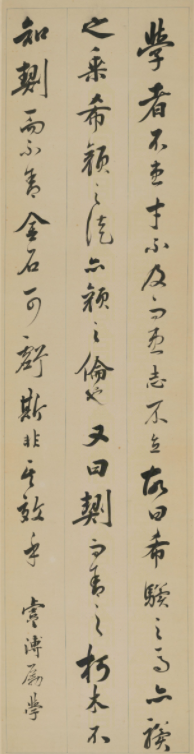 學者不患才不及而患志不立故曰希驥之馬亦驥
之乘希顏之徒亦顏之倫也又曰鍥而舍之朽木不
知鍥而不舍金石可虧斯非其效乎 虞溥厲學